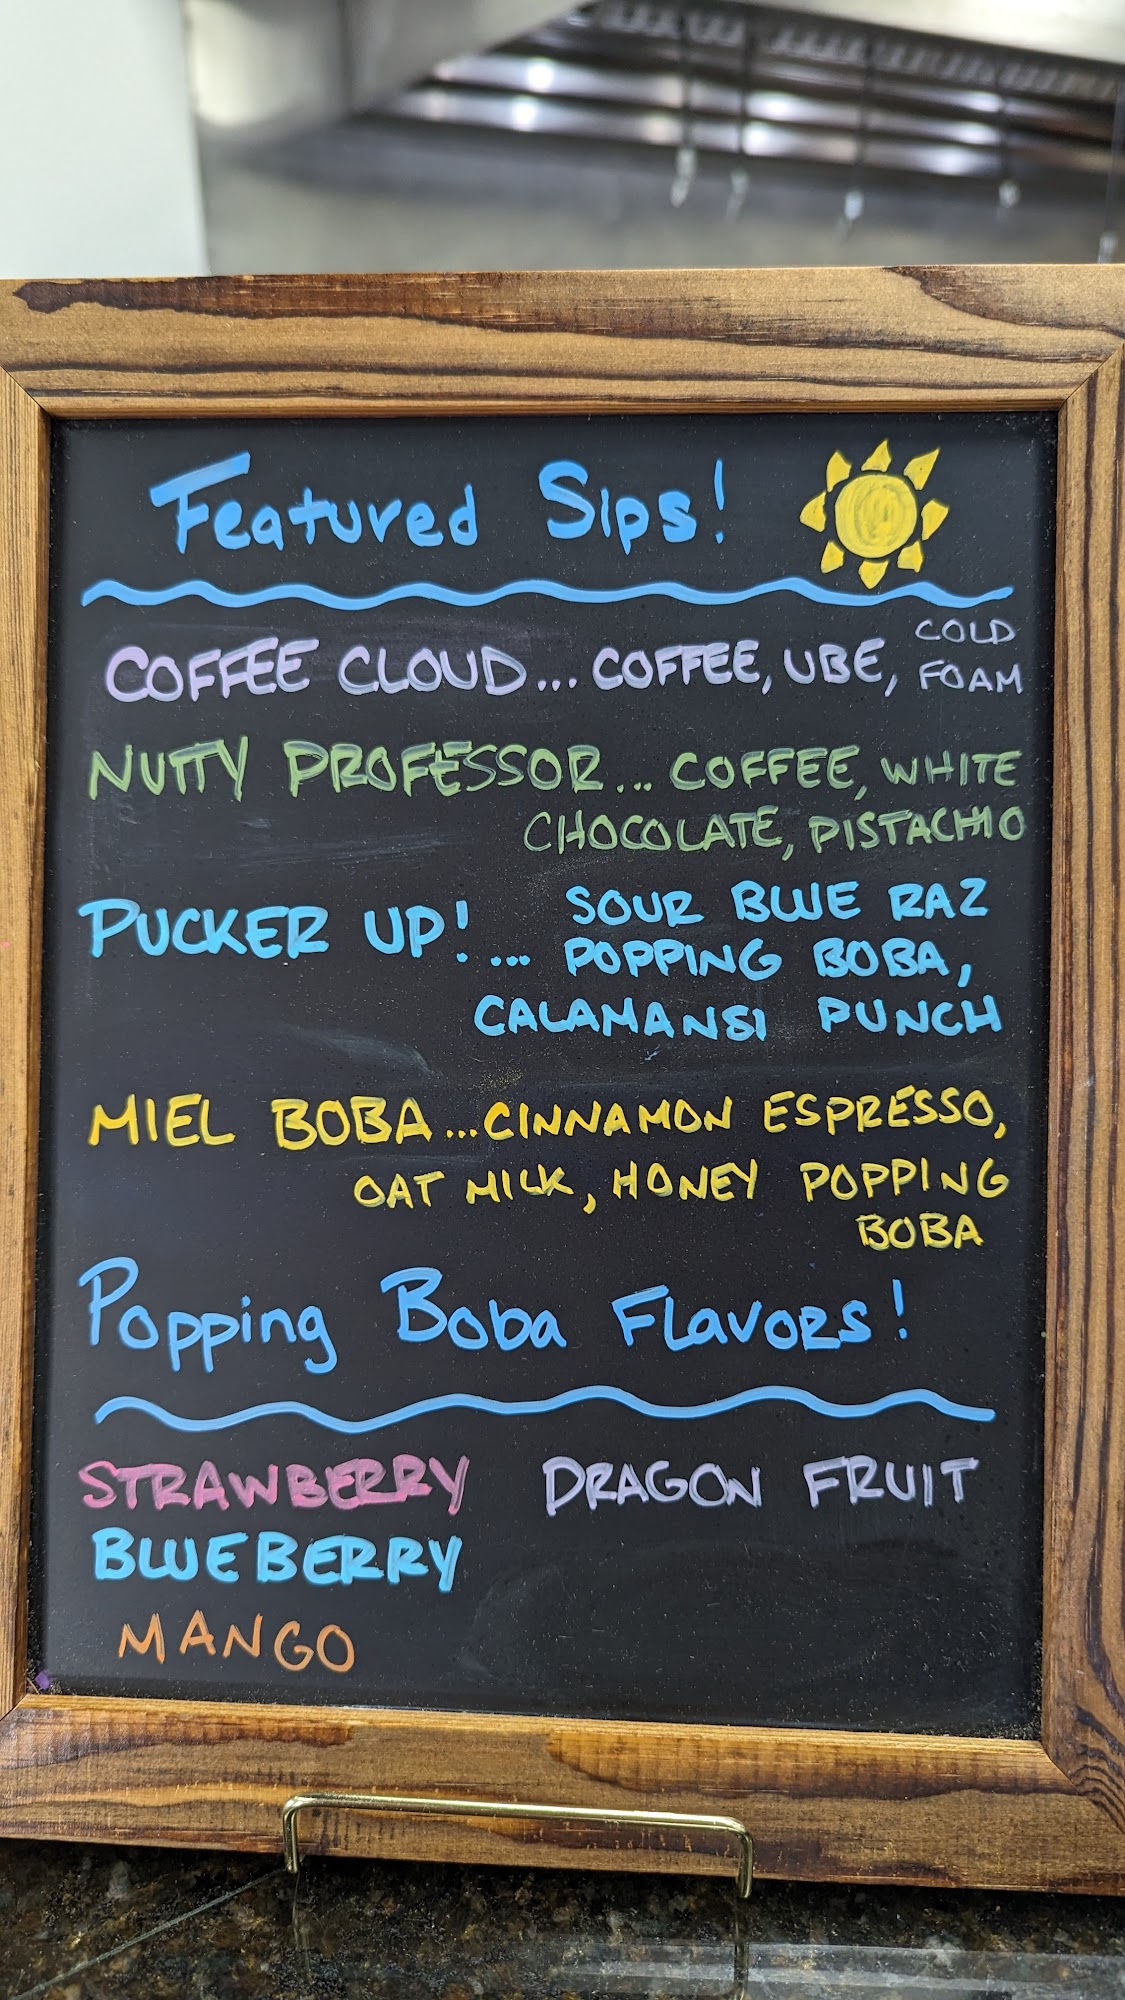 Featured Sips!
COFFEE CLOUD... COFFEE, UBE, COLD FOAM
NUTTY PROFESSOR... COFFEE, WHITE
CHOCOLATE, PISTACHIO
PUCKER UP!... SOUR BLUE RAZ
POPPING BOBA,
CALAMANSI PUNCH
MIEL BOBA...CINNAMON ESPRESSO,
OAT MILK, HONEY POPPING
BOBA
Popping Boba Flavors!
STRAWBERRY DRAGON FRUIT
BLUEBERRY
MANGO